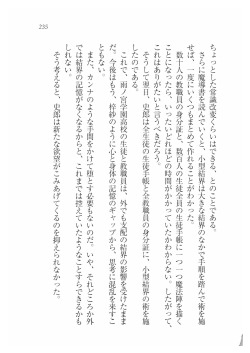 235
ちょっとした常識改変くらいはできる、とのことである。
さらに魔導書を読んでいくと、小型結界は大きな結界のなかで手順を踏んで術を施
せば、一度にいくつもまとめて作れることがわかった。
数十人の教職員の身分証と、数百人の生徒全員の生徒手帳に一つ一つ魔法陣を描く
ことになったら、いったいどれほどの時間がかかっていたかわからない。したがって、
これはありがたいと言うべきだろう。
そうして翌日、史郎は全生徒の生徒手帳と全教職員の身分証に、小型結界の術を施
したのである。
これで、雨ノ宮学園高校の生徒と教職員は、外でも支配の結界の影響を受けたまま
だ。今後はもう、神紗のように心と身体の記憶のギャップから、思考に混乱を来すこ
とはあるまい。
また、カンナのような手間をかけて堕とす必要もないのだ。いや、それどころか外
では結界の記憶がなくなるからと、これまでは控えていたようなことすらできるかも
しれない。
そう考えると、史郎は新たな欲望がこみあげてくるのを抑えられなかった。